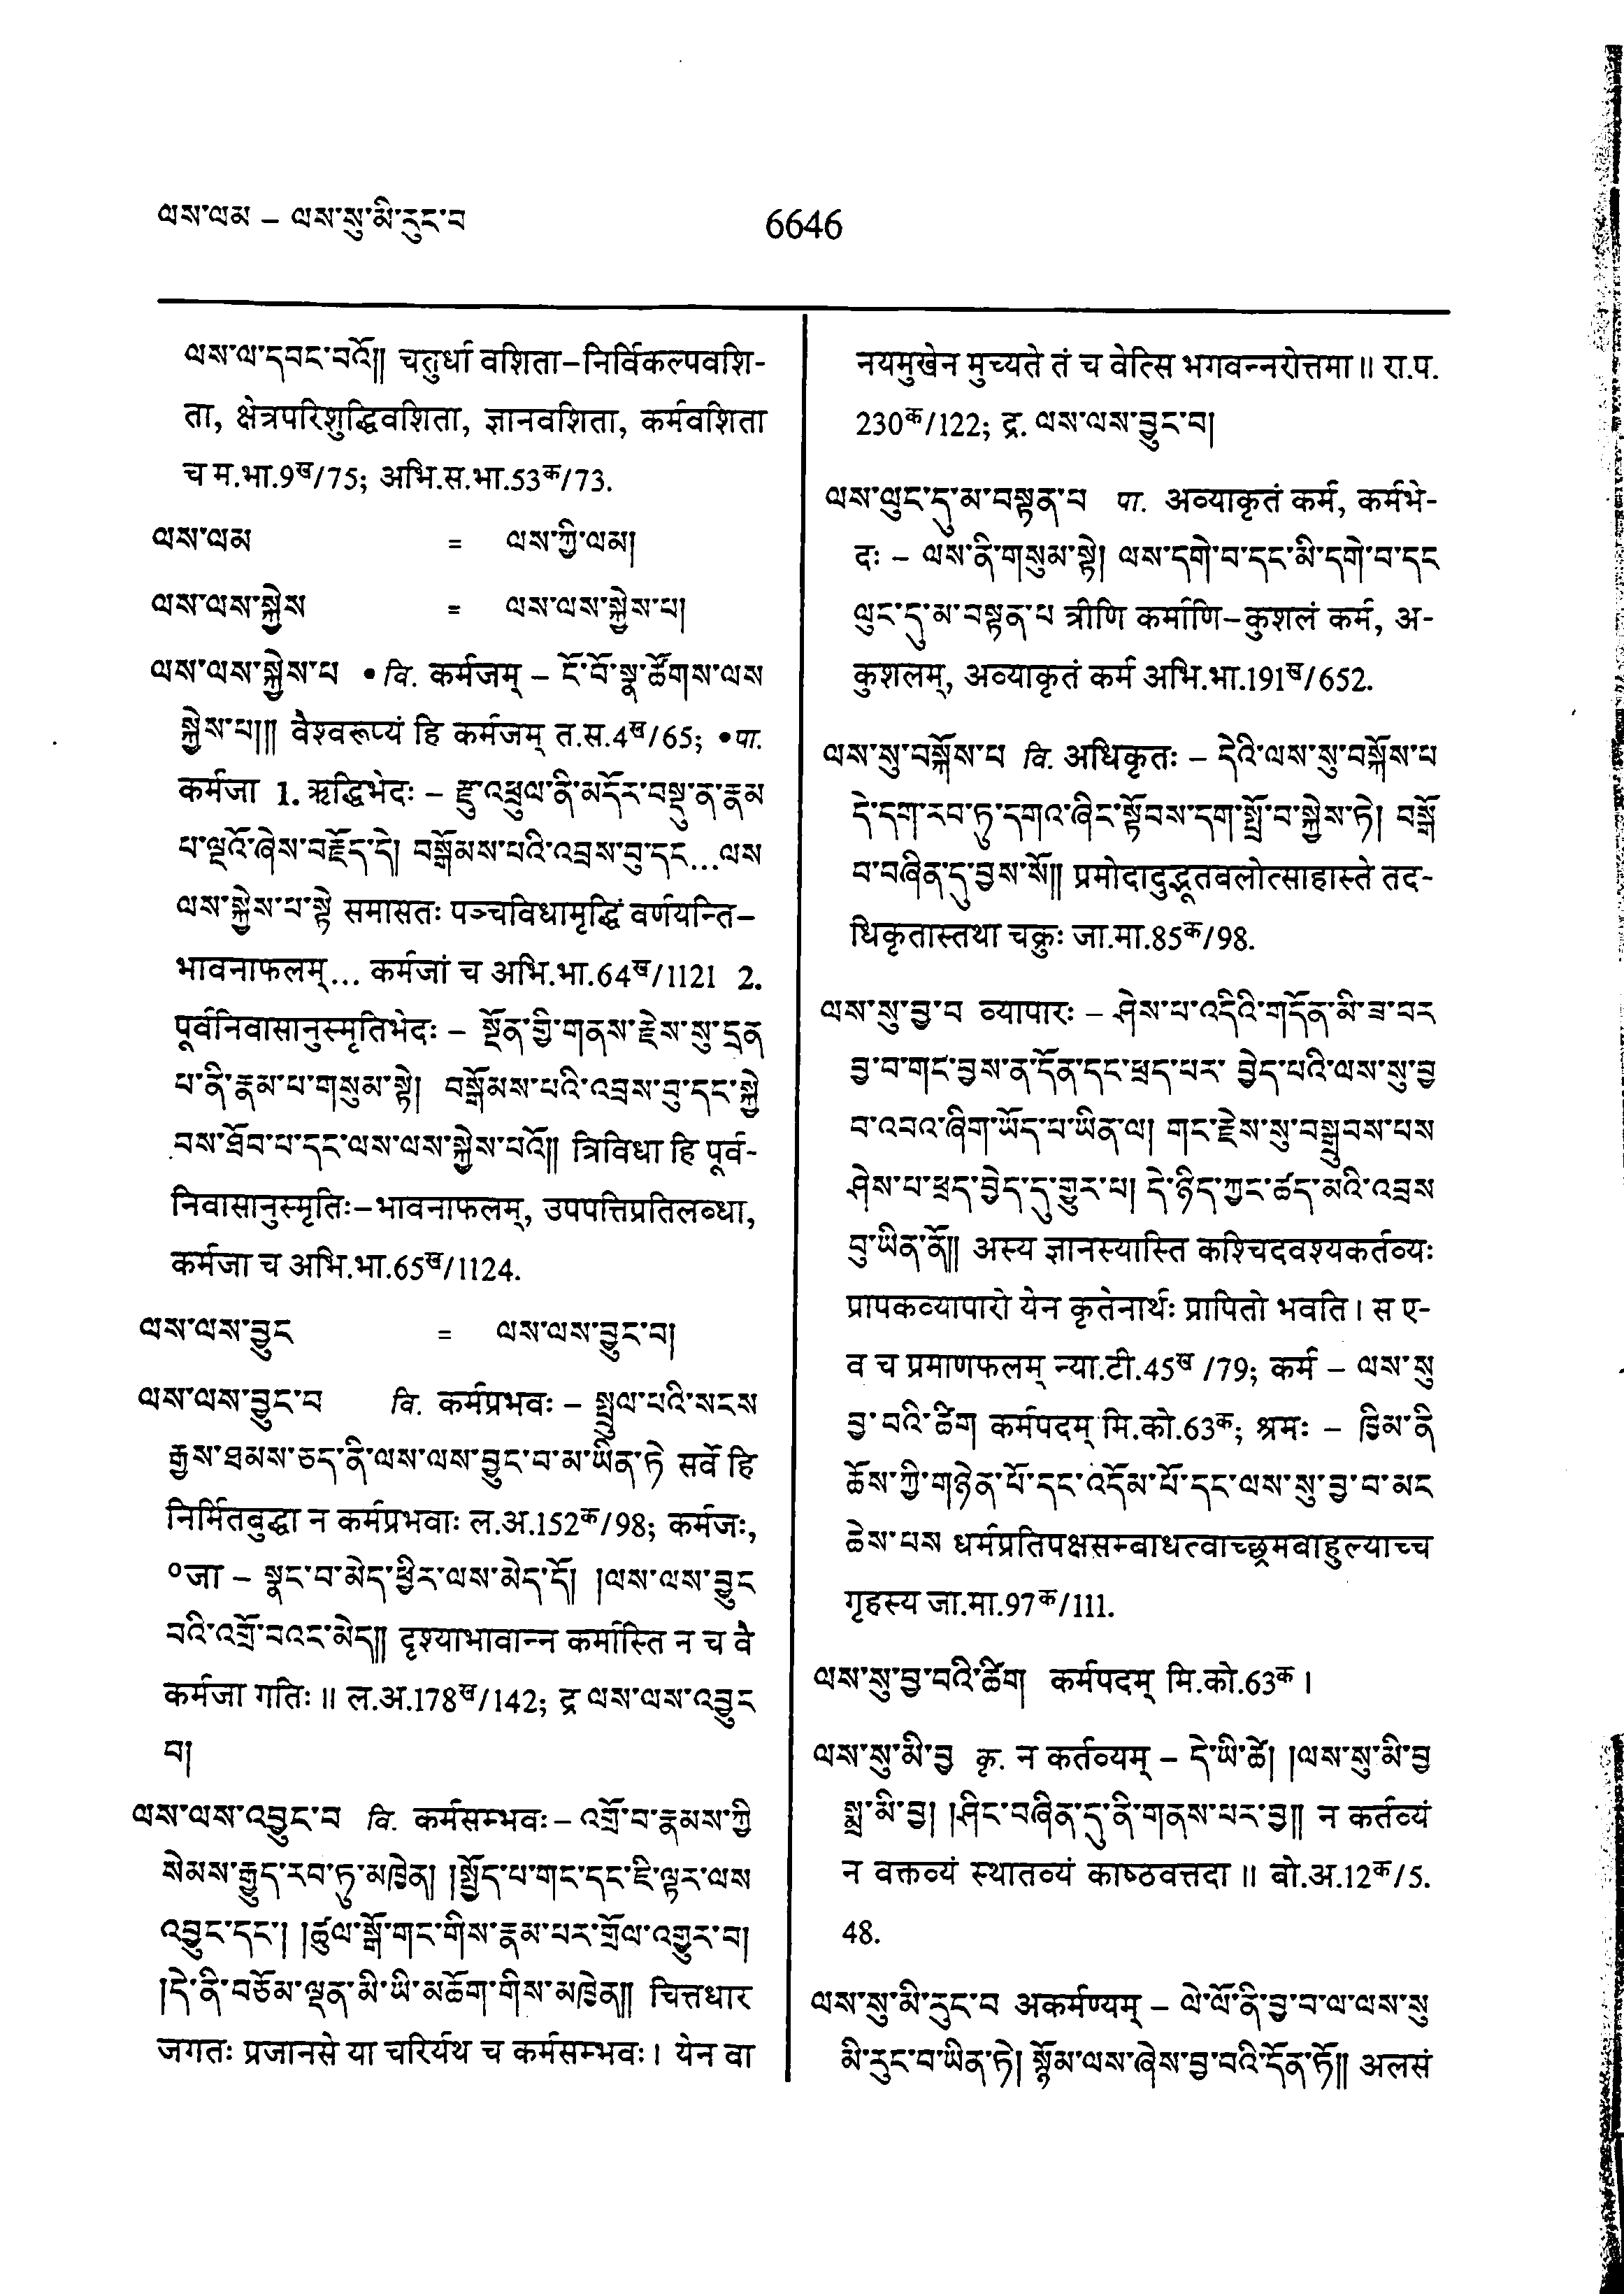 ལས་ལམ – ལས་སུ་མི་རུང་བ
6646
ལས་ལ་དབང་བའོ༎ चतुर्धा वशिता–निर्विकल्पवशि-
ता, क्षेत्रपरिशुद्धिवशिता, ज्ञानवशिता, कर्मवशिता
च म.भा.9ख/75; अभि.स.भा.53क/73.
ལས་ལམ = ལས་ཀྱི་ལམ།
ལས་ལས་སྐྱེས = ལས་ལས་སྐྱེས་པ།
ལས་ལས་སྐྱེས་པ • वि. कर्मजम् – ངོ་བོ་སྣ་ཚོགས་ལས
སྐྱེས་པ།༎ वैश्वरूप्यं हि कर्मजम् त.स.4ख/65; • पा.
कर्मजा 1. ऋद्धिभेदः – རྫུ་འཕྲུལ་ནི་མདོར་བསྡུ་ན་རྣམ
པ་ལྔའོ་ཞེས་བརྗོད་དེ། བསྒོམས་པའི་འབྲས་བུ་དང...ལས
ལས་སྐྱེས་པ་སྟེ समासतः पञ्चविधामृद्धिं वर्णयन्ति–
भावनाफलम्... कर्मजां च अभि.भा.64ख/1121 2.
पूर्वनिवासानुस्मृतिभेदः – སྔོན་གྱི་གནས་རྗེས་སུ་དྲན
པ་ནི་རྣམ་པ་གསུམ་སྟེ། བསྒོམས་པའི་འབྲས་བུ་དང་སྐྱེ
བས་ཐོབ་པ་དང་ལས་ལས་སྐྱེས་པའོ༎ त्रिविधा हि पूर्व-
निवासानुस्मृतिः–भावनाफलम्, उपपत्तिप्रतिलब्धा,
कर्मजा च अभि.भा.65ख/1124.
ལས་ལས་བྱུང = ལས་ལས་བྱུང་བ།
ལས་ལས་བྱུང་བ वि. कर्मप्रभवः – སྤྲུལ་པའི་སངས
རྒྱས་ཐམས་ཅད་ནི་ལས་ལས་བྱུང་བ་མ་ཡིན་ཏེ सर्वे हि
निर्मितबुद्धा न कर्मप्रभवाः ल.अ.152क/98; कर्मजः,
°जा – སྣང་བ་མེད་ཕྱིར་ལས་མེད་དོ། །ལས་ལས་བྱུང
བའི་འགྲོ་བའང་མེད༎ दृश्याभावान्न कर्मास्ति न च वै
कर्मजा गतिः ॥ ल.अ.178ख/142; द्र ལས་ལས་འབྱུང
བ།
ལས་ལས་འབྱུང་བ वि. कर्मसम्भवः – འགྲོ་བ་རྣམས་ཀྱི
སེམས་རྒྱུད་རབ་ཏུ་མཁྱེན། །སྤྱོད་པ་གང་དང་ཇི་ལྟར་ལས
འབྱུང་དང་། །ཚུལ་སྒོ་གང་གིས་རྣམ་པར་གྲོལ་འགྱུར་བ།
།དེ་ནི་བཅོམ་ལྡན་མི་ཡི་མཆོག་གིས་མཁྱེན༎ चित्तधार
जगतः प्रजानसे या चरिर्यथ च कर्मसम्भवः । येन वा
नयमुखेन मुच्यते तं च वेत्सि भगवन्नरोत्तमा ॥ रा.प.
230क/122; द्र. ལས་ལས་བྱུང་བ།
ལས་ལུང་དུ་མ་བསྟན་པ पा. अव्याकृतं कर्म, कर्मभे-
दः – ལས་ནི་གསུམ་སྟེ། ལས་དགེ་བ་དང་མི་དགེ་བ་དང
ལུང་དུ་མ་བསྟན་པ त्रीणि कर्माणि–कुशलं कर्म, अ-
कुशलम्, अव्याकृतं कर्म अभि.भा.191ख/652.
ལས་སུ་བསྐོས་པ वि. अधिकृतः – དེའི་ལས་སུ་བསྐོས་པ
དེ་དག་རབ་ཏུ་དགའ་ཞིང་སྟོབས་དག་སྤྲོ་བ་སྐྱེས་ཏེ། བསྒོ
བ་བཞིན་དུ་བྱས་སོ༎ प्रमोदादुद्भूतवलोत्साहास्ते तद-
धिकृतास्तथा चक्रुः जा.मा.85क/98.
ལས་སུ་བྱ་བ व्यापारः – ཤེས་པ་འདིའི་གདོན་མི་ཟ་བར
བྱ་བ་གང་བྱས་ན་དོན་དང་ཕྲད་པར་ བྱེད་པའི་ལས་སུ་བྱ
བ་འབའ་ཞིག་ཡོད་པ་ཡིན་ལ། གང་རྗེས་སུ་བསྒྲུབས་པས
ཤེས་པ་ཕྲད་བྱེད་དུ་གྱུར་པ། དེ་ཉིད་ཀྱང་ཚད་མའི་འབྲས
བུ་ཡིན་ནོ༎ अस्य ज्ञानस्यास्ति कश्चिदवश्यकर्तव्यः
प्रापकव्यापारो येन कृतेनार्थः प्रापितो भवति । स ए-
व च प्रमाणफलम् न्या.टी.45ख /79; कर्म – ལས་སུ
བྱ་བའི་ཚིག कर्मपदम् मि.को.63क; श्रमः – ཁྱིམ་ནི
ཆོས་ཀྱི་གཉེན་པོ་དང་འདོམ་པོ་དང་ལས་སུ་བྱ་བ་མང
ཆེས་པས धर्मप्रतिपक्षसम्बाधत्वाच्छ्रमबाहुल्याच्च
गृहस्य जा.मा.97क/111.
ལས་སུ་བྱ་བའི་ཚིག कर्मपदम् मि.को.63क ।
ལས་སུ་མི་བྱ कृ. न कर्तव्यम् – དེ་ཡི་ཚེ། །ལས་སུ་མི་བྱ
སྨྲ་མི་བྱ། །ཤིང་བཞིན་དུ་ནི་གནས་པར་བྱ༎ न कर्तव्यं
न वक्तव्यं स्थातव्यं काष्ठवत्तदा ॥ बो.अ.12क/5.
48.
ལས་སུ་མི་རུང་བ अकर्मण्यम् – ལེ་ལོ་ནི་བྱ་བ་ལ་ལས་སུ
མི་རུང་བ་ཡིན་ཏེ། སྙོམ་ལས་ཞེས་བྱ་བའི་དོན་ཏོ༎ अलसं